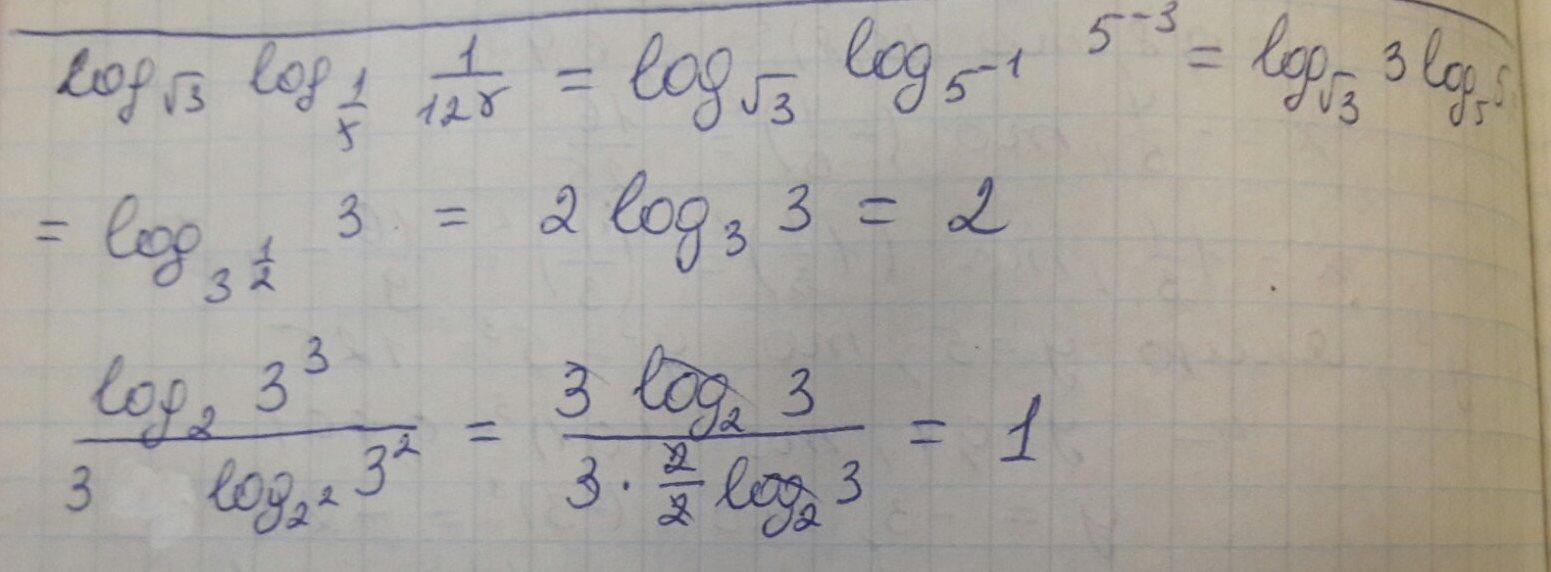 log_{√3} log_{1/5} 1/125 = log_{√3} log_{5^{-1}} 5^{-3} = log_{√3} 3 log_5 5
= log_{3^{1/2}} 3 = 2 log_3 3 = 2
(log_2 3^3)/(3 log_{2^2} 3^2) = (3 log_2 3)/(3 · 2/2 log_2 3) = 1